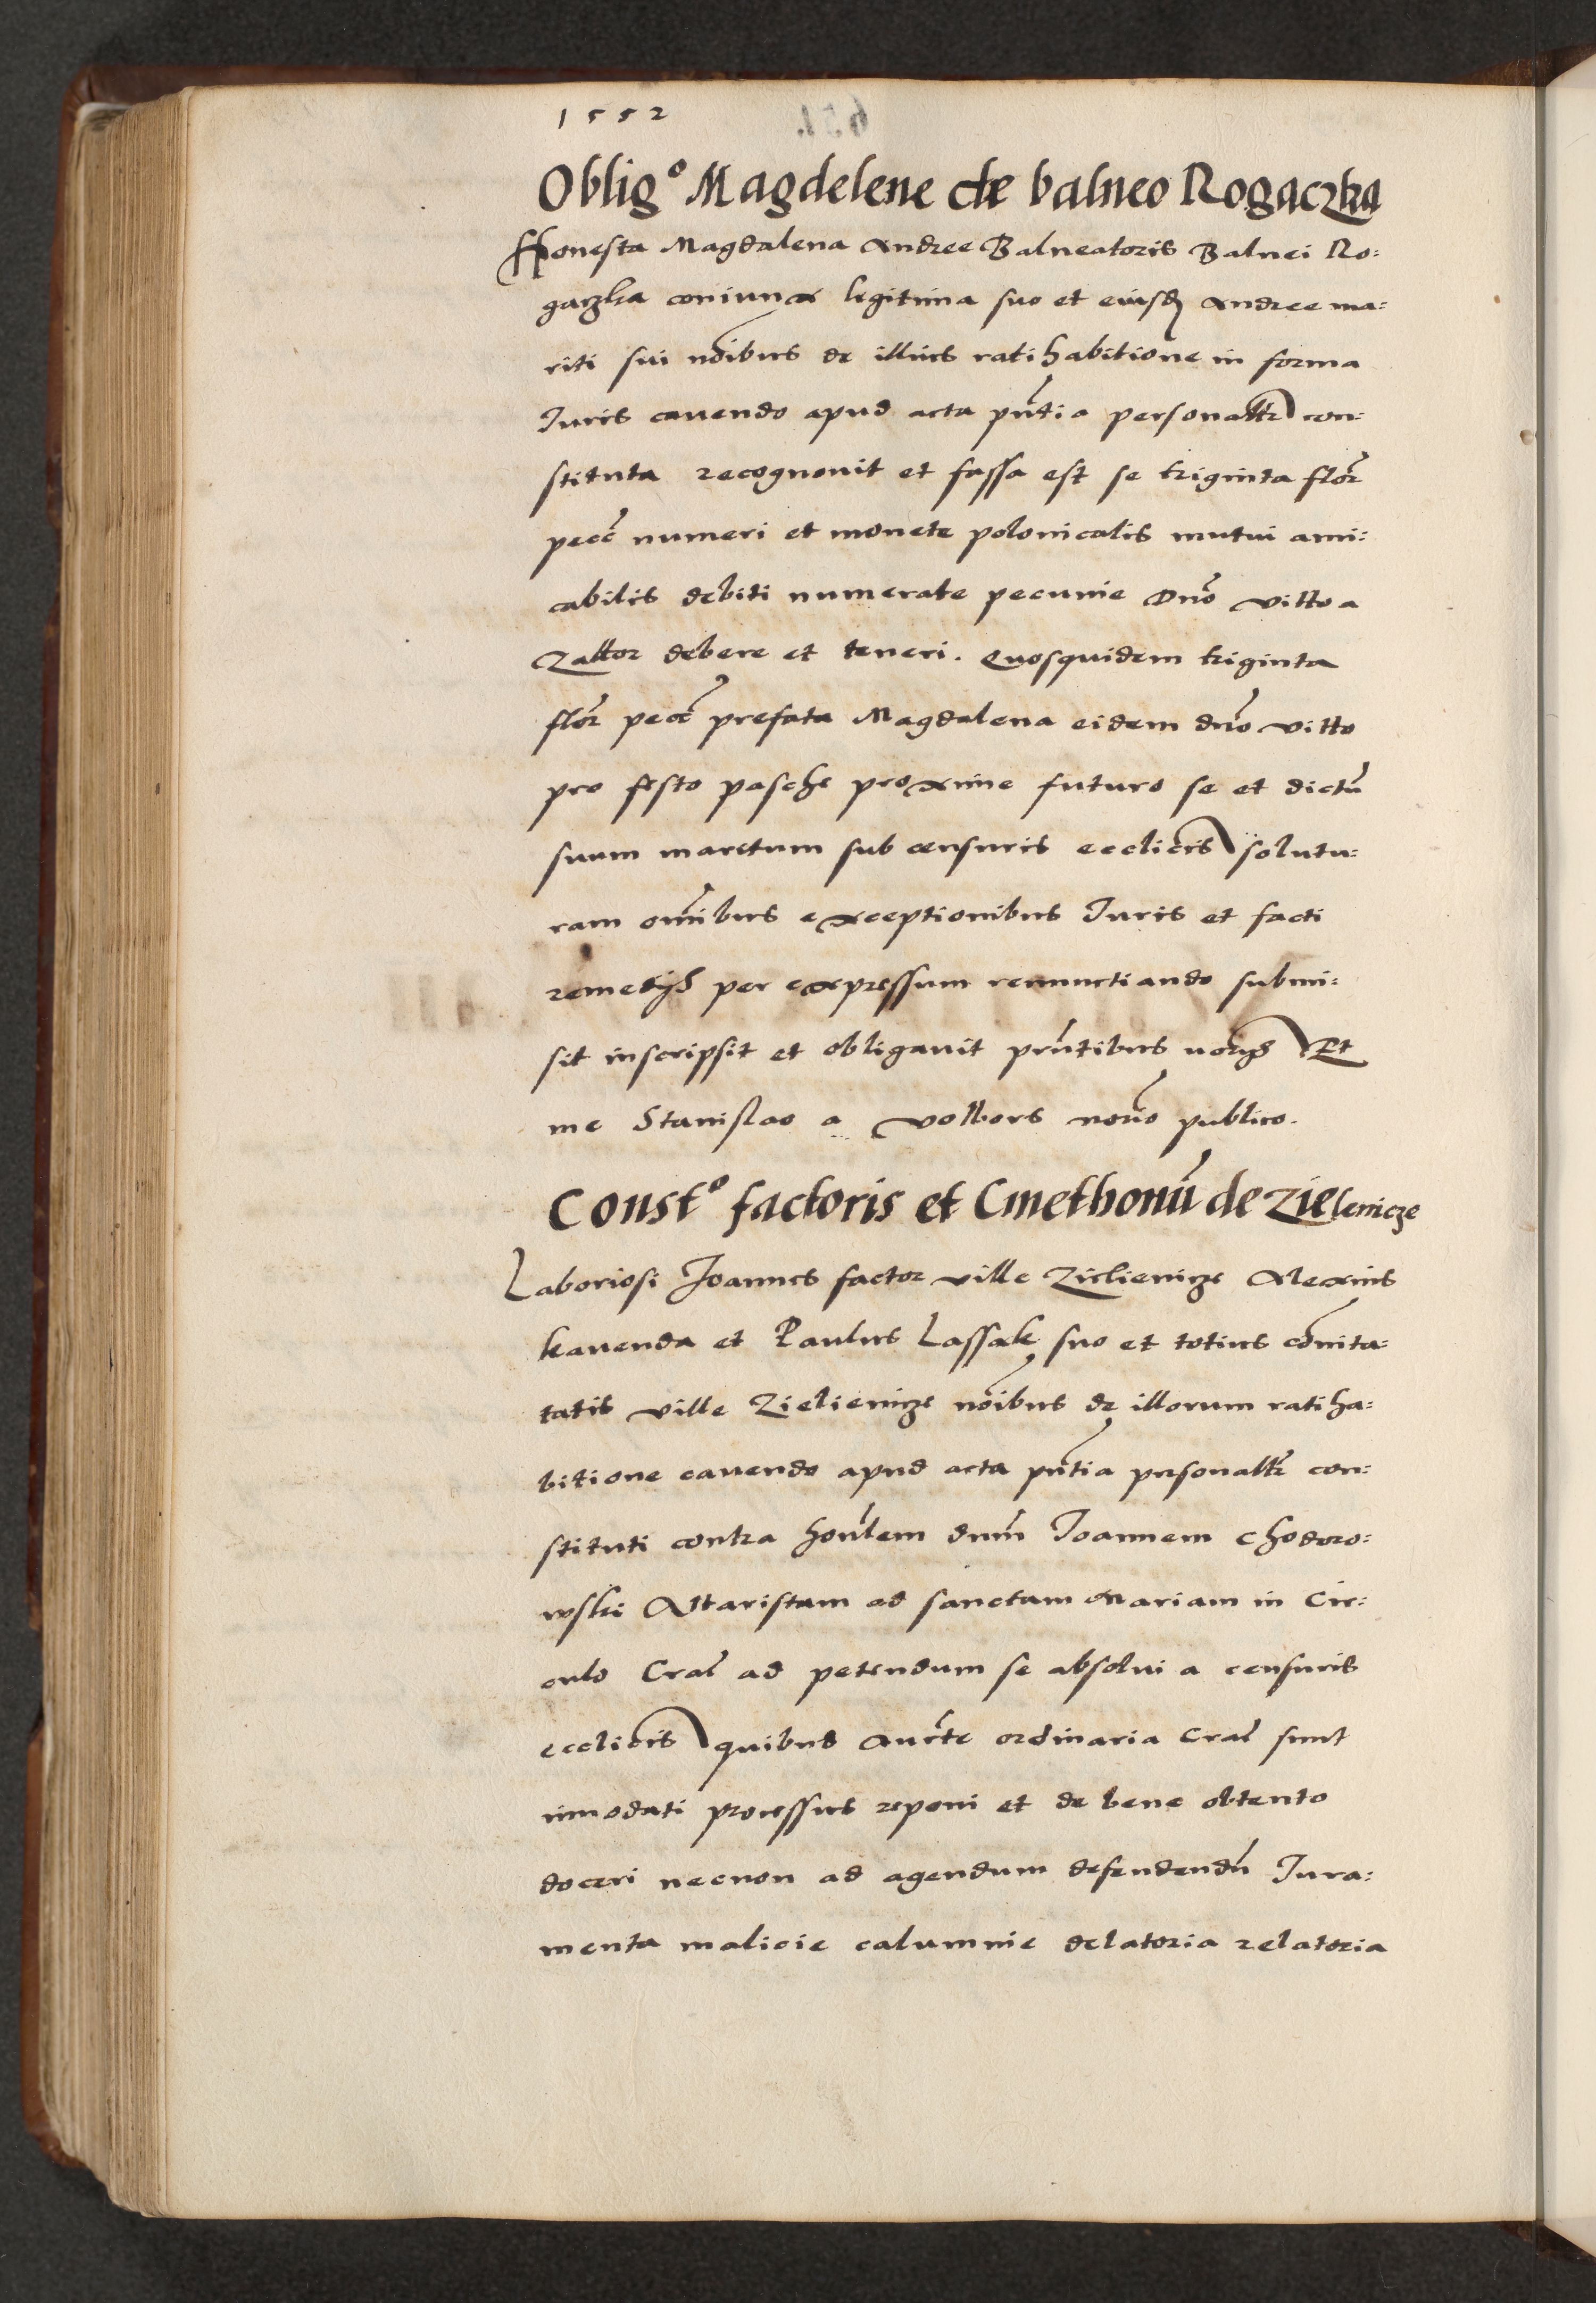 1552
Oblig° Magdelene de balneo Rogaczka
Honesta Magdalena Andree Balneatoris Balnei Ro:
gaczka coniunx legitima suo et eiusd Andree ma:
riti sui nõibus de illius ratihabitione in forma
Iuris cauendo apud acta pñtia personaltr con:
stituta recognouit et fassa est se triginta flor
pecc numeri et monete polonicalis mutui ami:
cabilis debiti numerate pecunie Dño Vitto a
Zattor debere et teneri. Quosquidem triginta
flor pecc prefata Magdalena eidem dño Vitto
pro festo pasche proxime futuro se et dictũ
suum maritum sub censuris ecclicis solutu:
ram omĩbus exceptionibus Iuris et facti
remedijs per expressum renunctiando submi:
sit inscripsit et obligauit prñtibus norijs Et
me Stanislao a Volbors norio publico.
Const° factoris et Cmethonũ de Zielenicze
Laboriosi Joannes factor ville Zielienicze Alexius
kauenda et Paulus Lassak suo et totius cõmita:
tatis ville Zielienicze nõibus de illorum ratiha:
bitione cauendo apud acta pñtia personaltr con:
stituti contra honlem dnm̃ Joannem Chodoro:
wski Altaristam ad sanctam Mariam in Cir:
culo Cracˀ ad petendum se absolui a censuris
ecclicis quibus aucte ordinaria Cracˀ sunt
innodati processus reponi et de bene obtento
doceri necnon ad agendum defendendũ Iura:
menta malicie calumnie delatoria relatoria